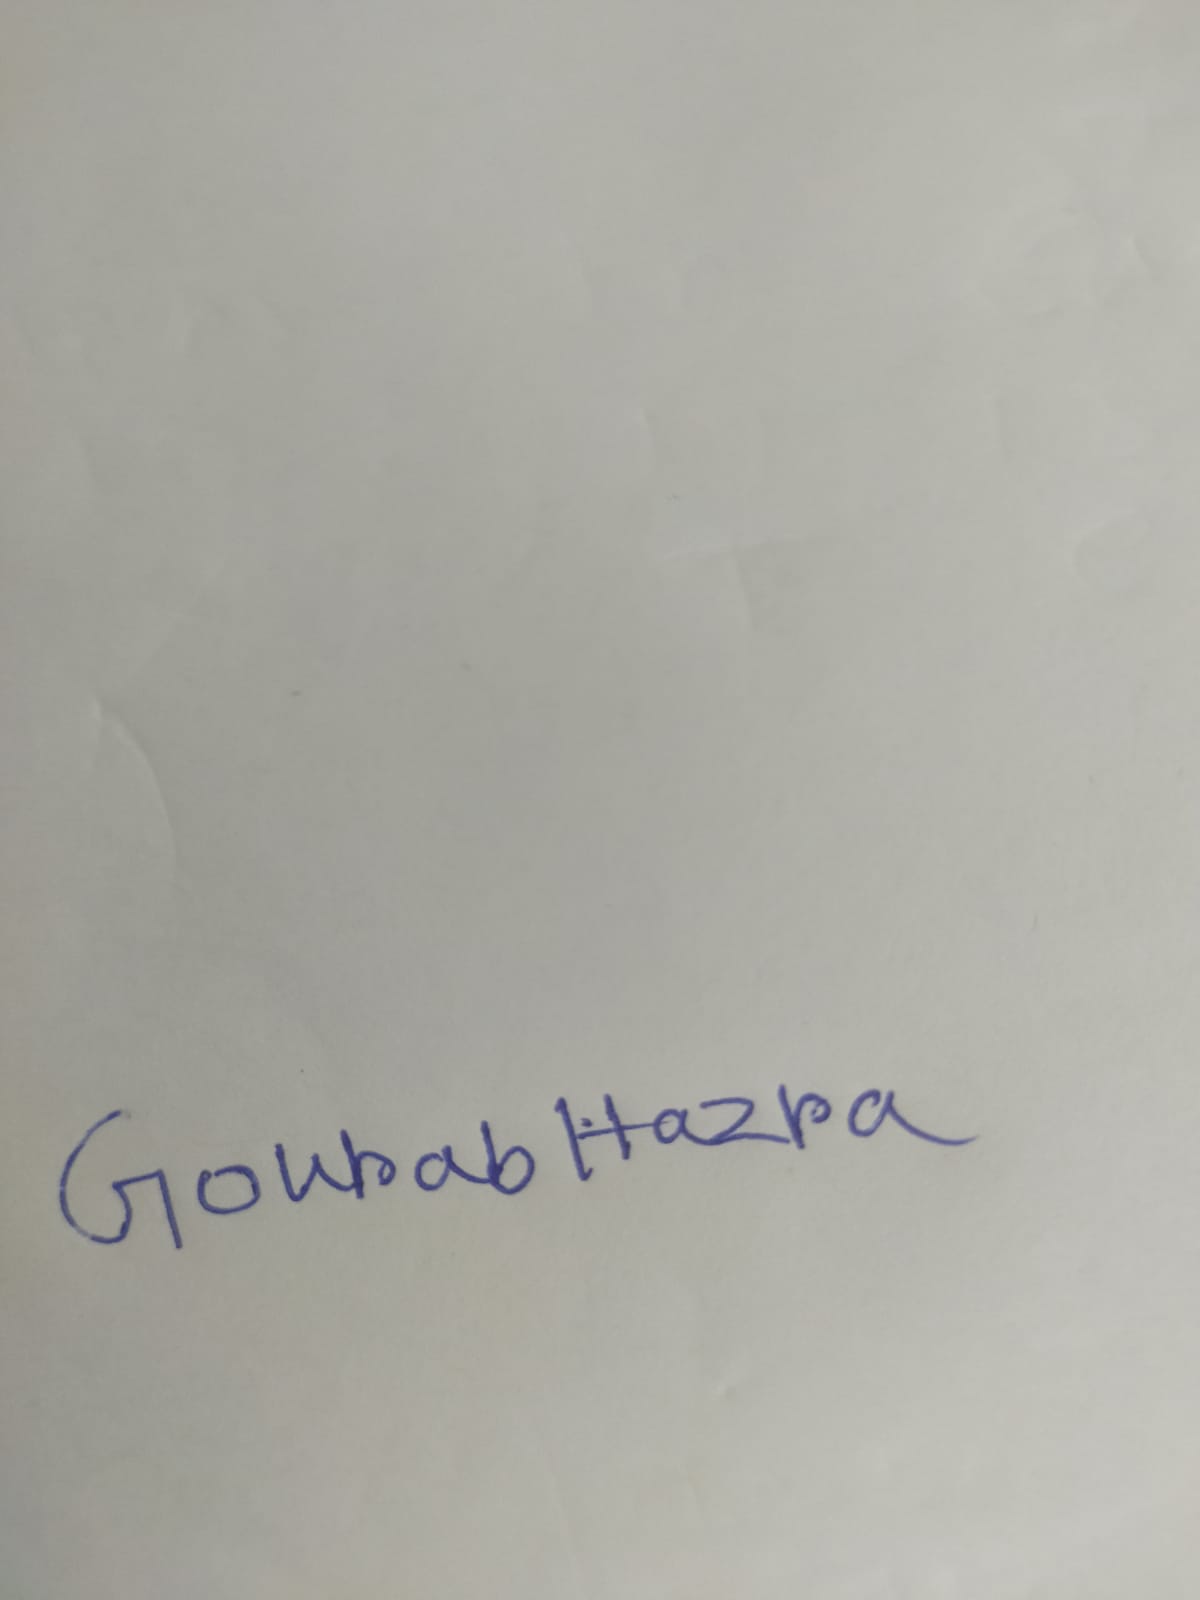 Gourab Hazra